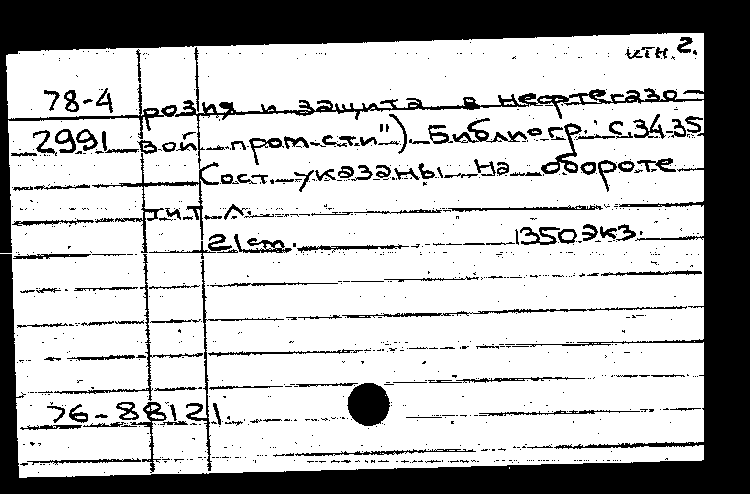 ктн. 2.
78-4 розия и защита в нефтегазо-
2991 вой пром-сти") Библиогр.: с. 34-35
Сост. указаны на обороте
тит. л.
21 cm. 1350 экз.
76-88121.